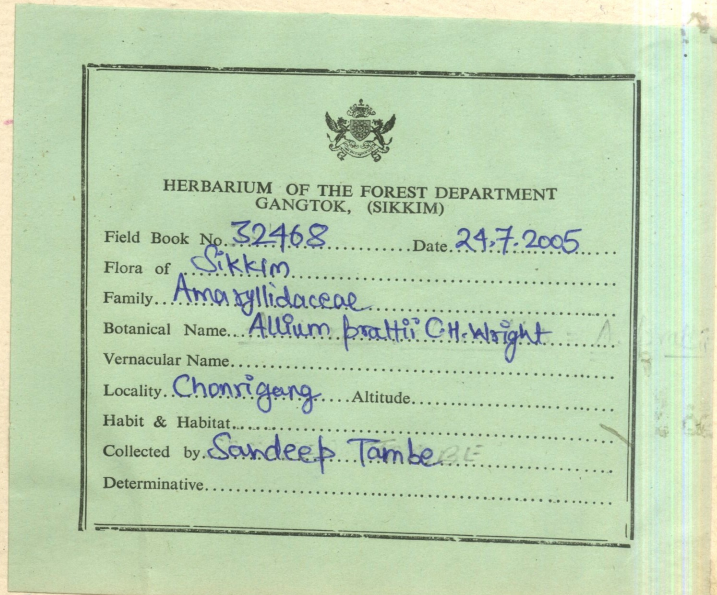 HERBARIUM OF THE FOREST DEPARTMENT
GANGTOK, (SIKKIM)
Field Book No. 32468 Date 24.7.2005
Flora of Sikkim
Family Amaryllidaceae
Botanical Name Allium prattii C.H. Wright
Vernacular Name
Locality Chonrigang Altitude
Habit & Habitat
Collected by Sandeep Tambe
Determinative